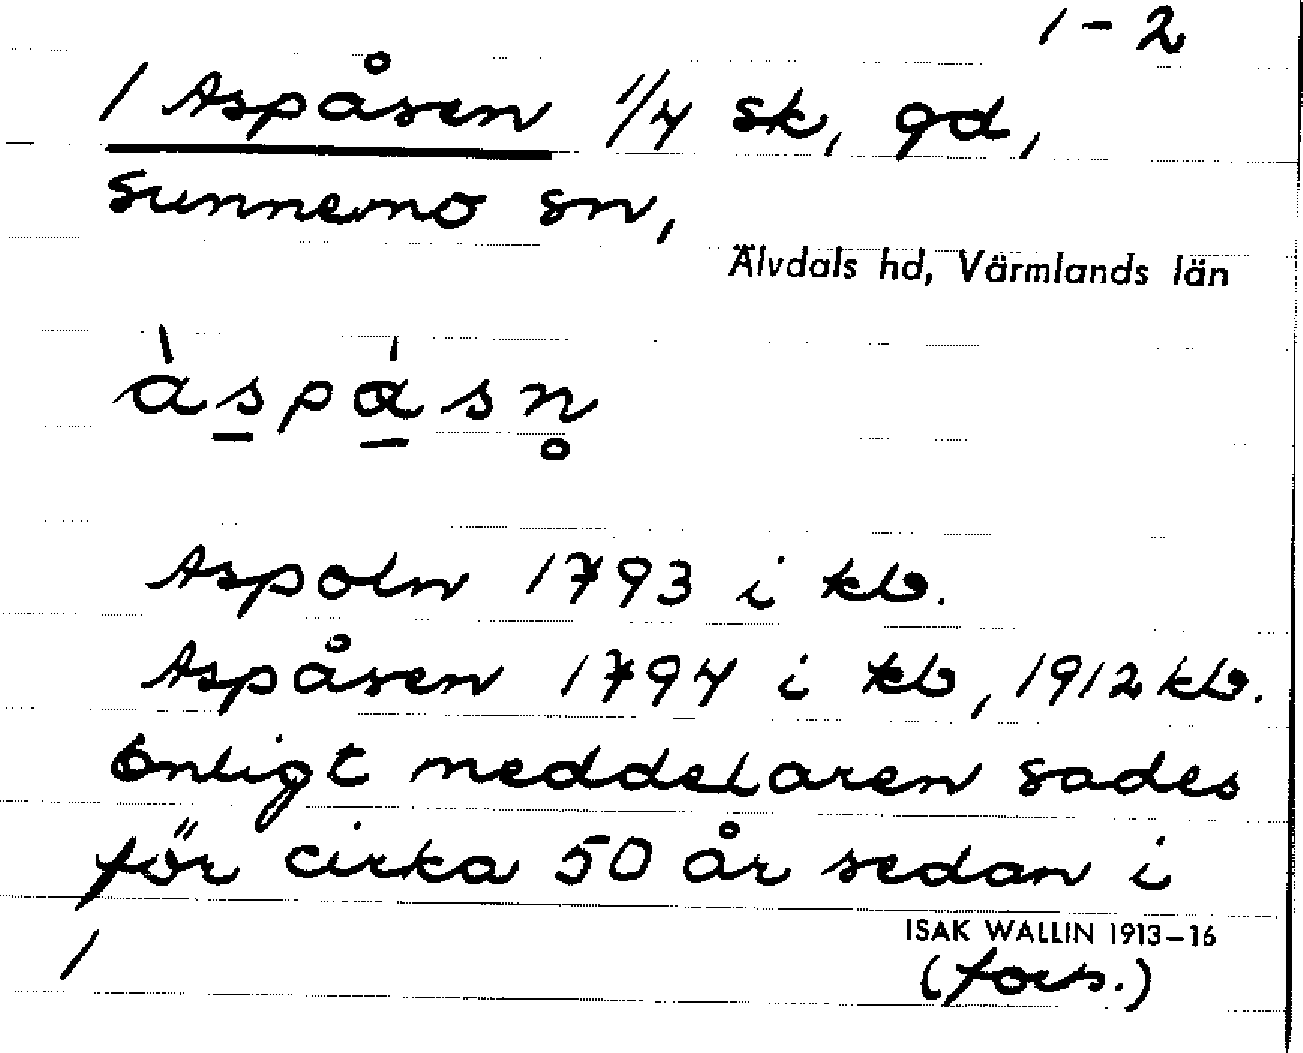 1-2
1 Aspåsen 1/4 sk, gd,
Sunnemo sn,
Älvdals hd, Värmlands län
àspásn̥
Aspoln 1793 i kb.
Aspåsen 1794 i kb, 1912 kb.
Enligt meddelaren sades
för cirka 50 år sedan i
ISAK WALLIN 1913-16
1 (forts.)